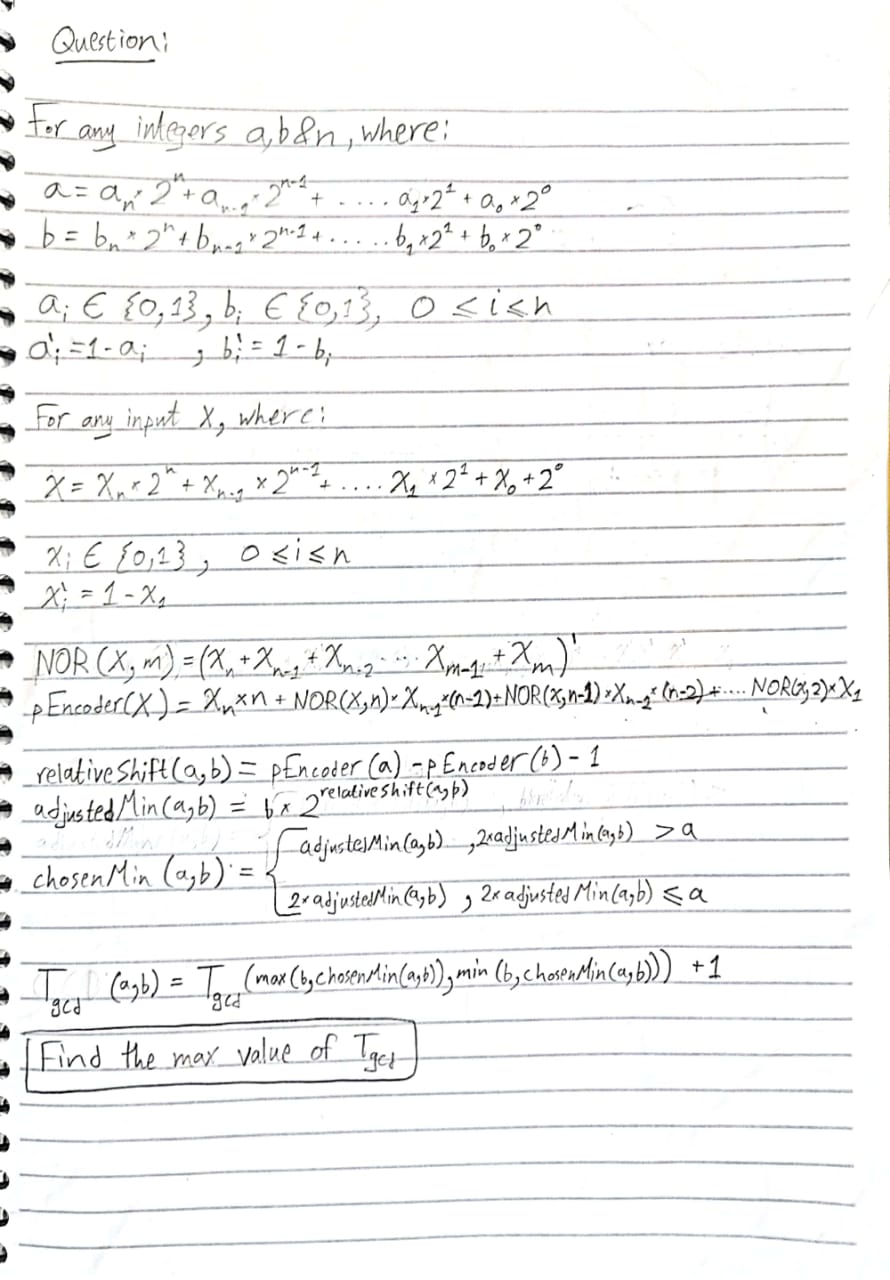 Question:
For any integers a,b&n, where:
a = aₙ × 2ⁿ + aₙ₋₁ × 2ⁿ⁻¹ + ..... a₁×2¹ + a₀ ×2⁰
b = bₙ × 2ⁿ + bₙ₋₁ × 2ⁿ⁻¹ + ...... b₁ ×2¹ + b₀ × 2⁰
aᵢ ∈ {0,1}, bᵢ ∈ {0,1}, 0 ≤ i ≤ n
a'ᵢ = 1 - aᵢ , bᵢ' = 1 - bᵢ
For any input X, where:
X = Xₙ × 2ⁿ + Xₙ₋₁ × 2ⁿ⁻¹ + .... X₁ × 2¹ + X₀ + 2⁰
xᵢ ∈ {0,1}, 0 ≤ i ≤ n
xᵢ' = 1 - X₁
NOR (X, m) = (Xₙ + Xₙ₋₁ + Xₙ₋₂ ... Xₘ₋₁ + Xₘ)'
pEncoder(X) = Xₙ×n + NOR(X,n) × Xₙ₋₁×(n-1) + NOR(X,n-1) × Xₙ₋₂× (n-2) + .... NOR(X,2) × X₁
relativeShift(a,b) = pEncoder(a) - pEncoder(b) - 1
adjustedMin(a,b) = b × 2^relativeShift(a,b)
chosenMin (a,b) = { adjustedMin(a,b) , 2×adjustedMin(a,b) > a
2×adjustedMin(a,b) , 2×adjustedMin(a,b) ≤ a
T_gcd (a,b) = T_gcd (max(b,chosenMin(a,b)), min (b,chosenMin(a,b))) + 1
Find the max value of T_gcd